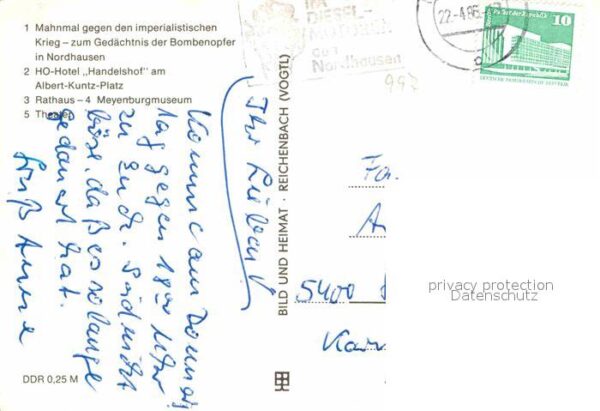 1 Mahnmal gegen den imperialistischen
Krieg – zum Gedächtnis der Bombenopfer
in Nordhausen
2 HO-Hotel „Handelshof" am
Albert-Kuntz-Platz
3 Rathaus – 4 Meyenburgmuseum
5 Theater
DDR 0,25 M
Ihr Lieben!
Komme am Donners
tag gegen 18 00 Uhr
zu Euch. Seid nicht
böse, daß es so lange
gedauert hat.
Gruß Anne
BILD UND HEIMAT · REICHENBACH (VOGTL)
DIESEL-
MOTOREN
aus
Nordhausen
22-4.85
997
Palast der Republik
10
DEUTSCHE DEMOKRATISCHE REPUBLIK
Fa.
5400
privacy protection
Datenschutz